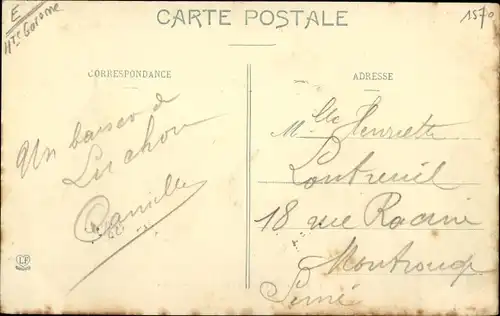 E
Hte Garonne
CARTE POSTALE
1570
CORRESPONDANCE
ADRESSE
Un baiser de
Luchon
Camille
Mlle Henriette
Lontreuil
18 rue Racine
Montrouge
Seine
LF